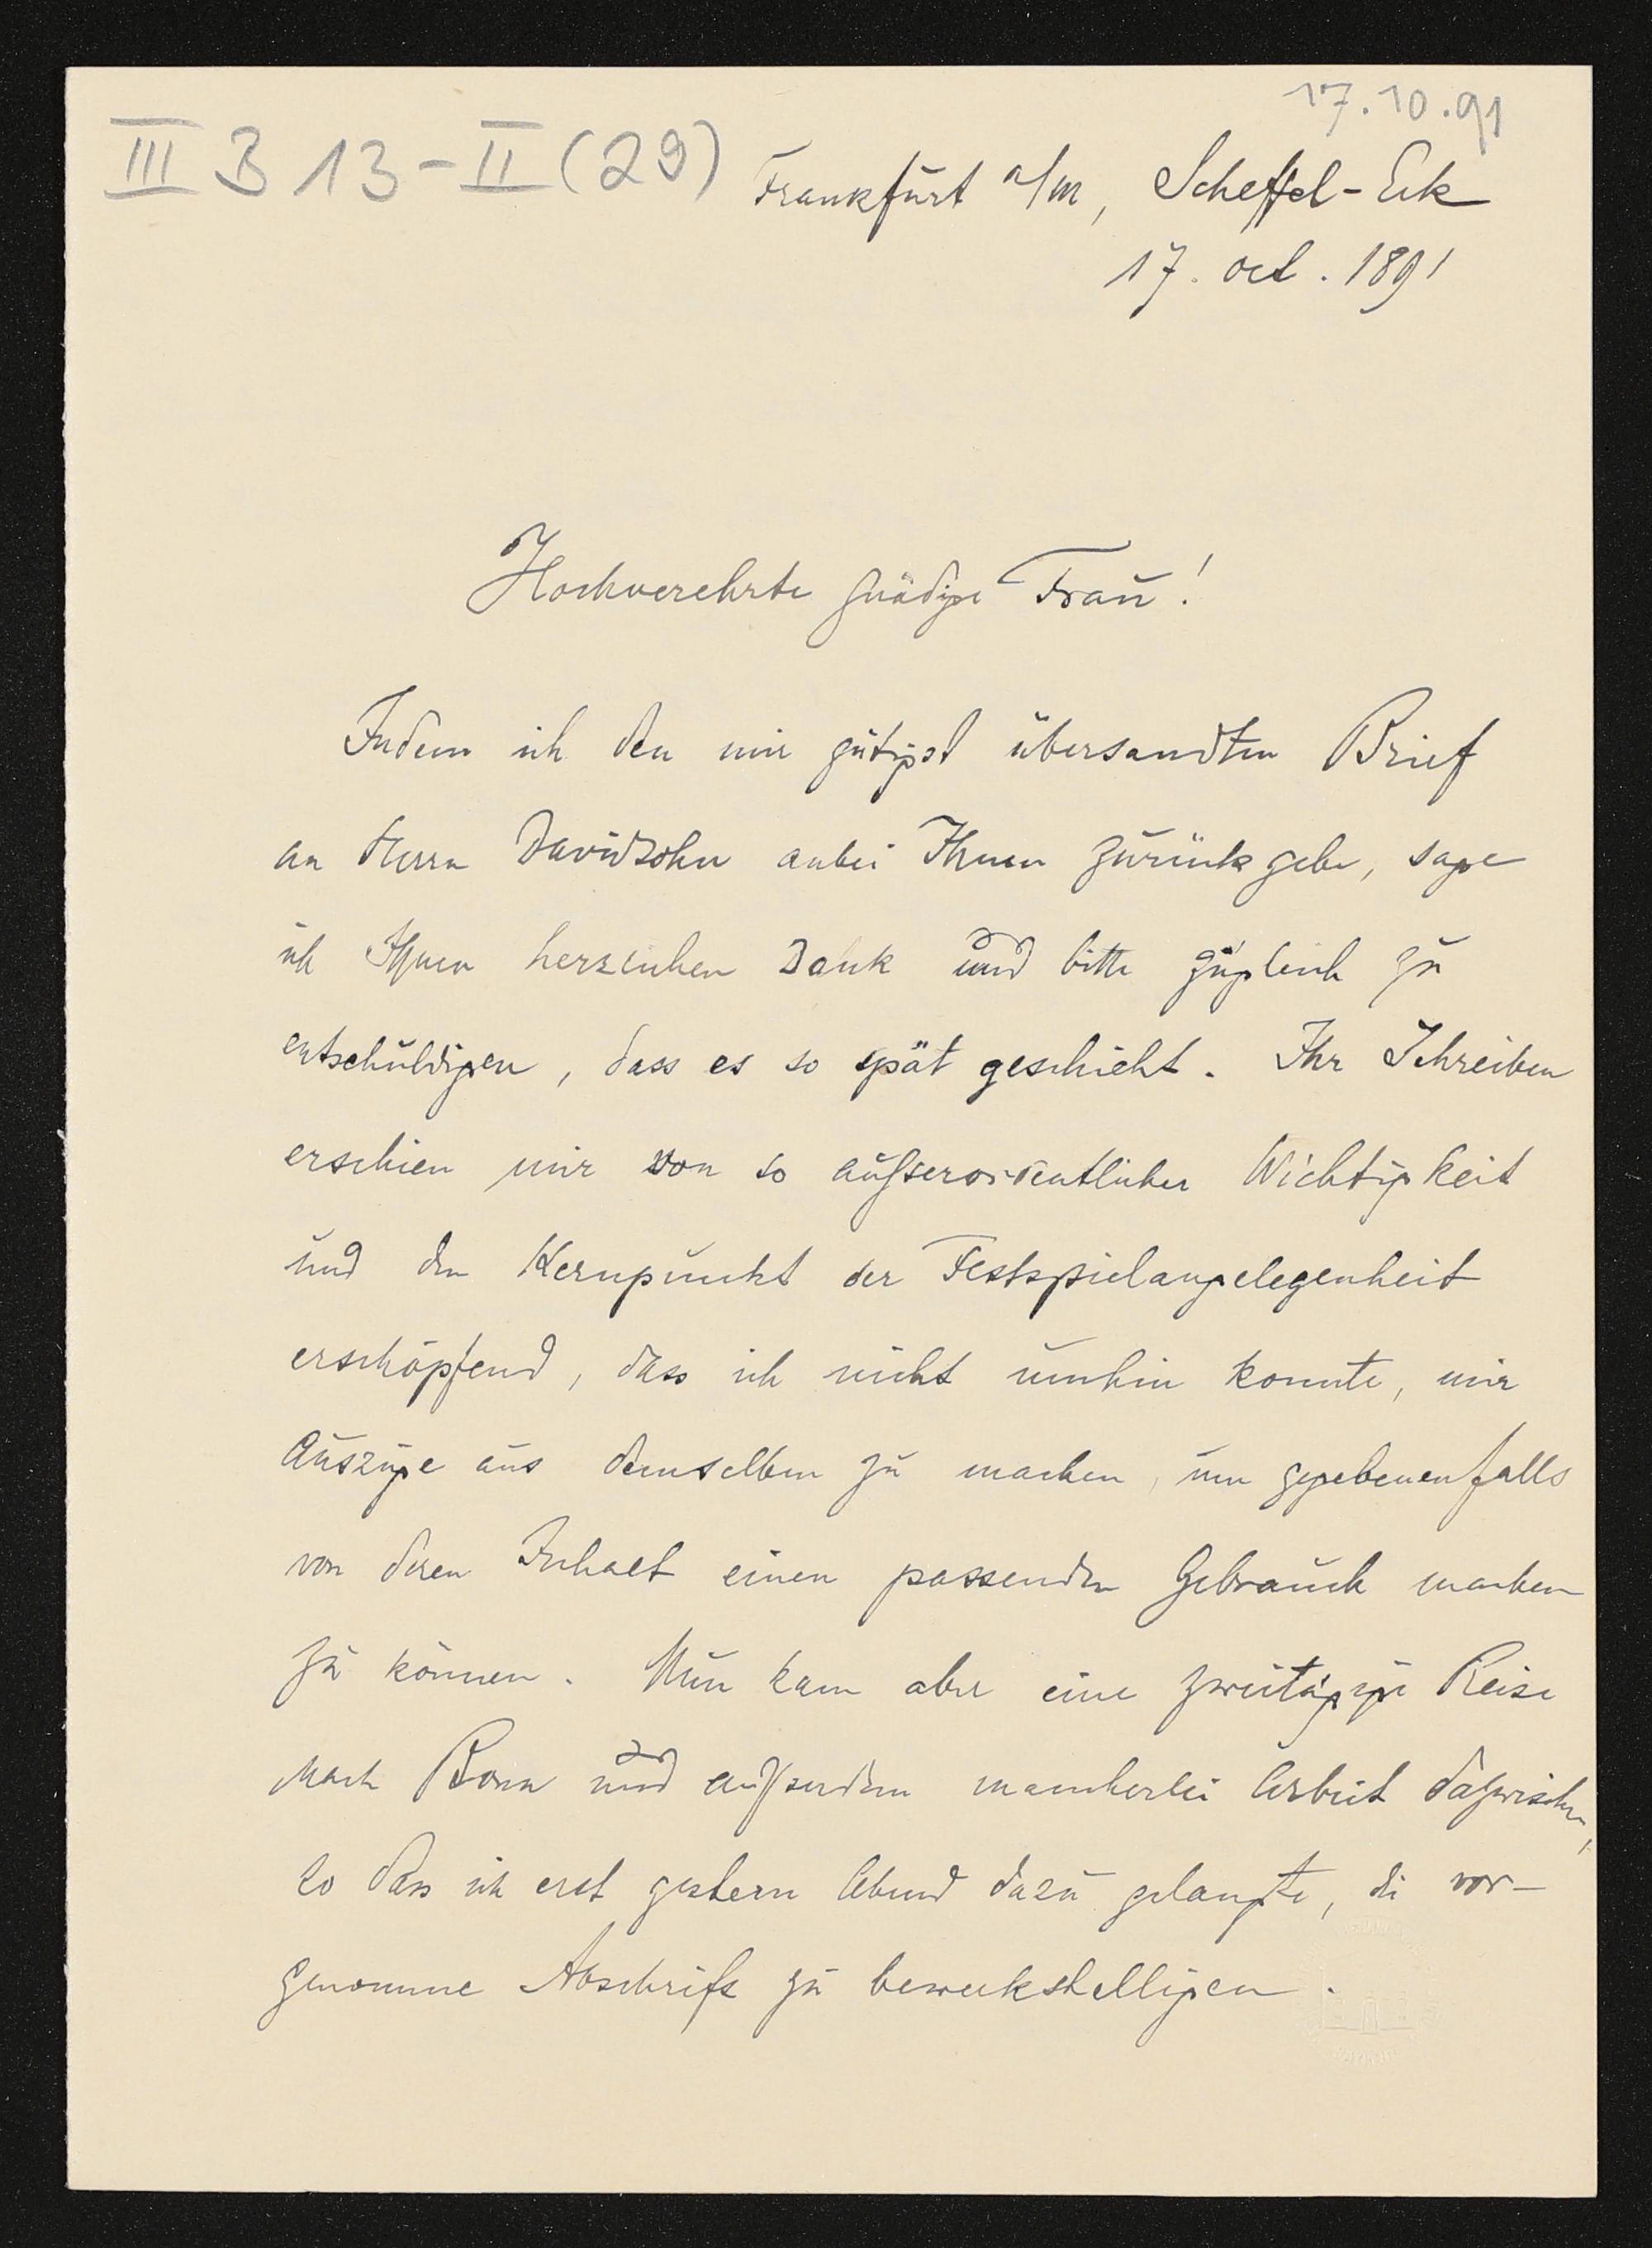 17.10.91
III B 13-II (29)
Frankfurt a/m, Scheffel-Eck
17. oct. 1891
Hochverehrte gnädige Frau!
Indem ich den mir gütigst übersandten Brief
an Herrn Davidsohn anbei Ihnen zurückgebe, sage
ich Ihnen herzlichen Dank und bitte zugleich zu
entschuldigen, dass es so spät geschieht. Ihr Schreiben
erschien mir von so außserordentlicher Wichtigkeit
und den Kernpunkt der Festspielangelegenheit
erschöpfend, dass ich nicht umhin konnte, mir
Auszüge aus demselben zu machen, um gegebenenfalls
von deren Inhalt einen passenden Gebrauch machen
zu können. Nun kam aber eine zweitägige Reise
nach Bonn und außserdem mancherlei Arbeit dazwischen,
so dass ich erst gestern Abend dazu gelangte, die vor-
genomme Abschrift zu bewerkstelligen.